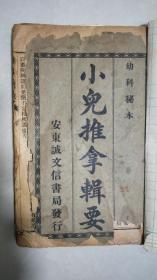 幼科秘本
小兒推拿輯要
安東誠文信書局發行